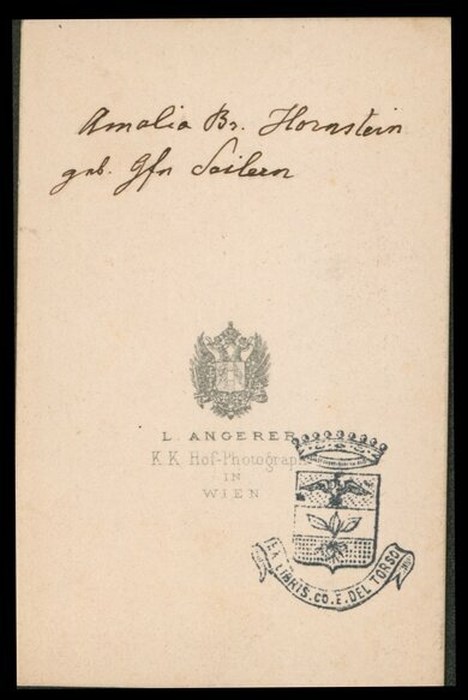 Amalia Br. Hornstein
geb. Gfn Seilern
L. ANGERER
K. K. Hof-Photograph
IN
WIEN
EX LIBRIS. CO. E. DEL TORSO